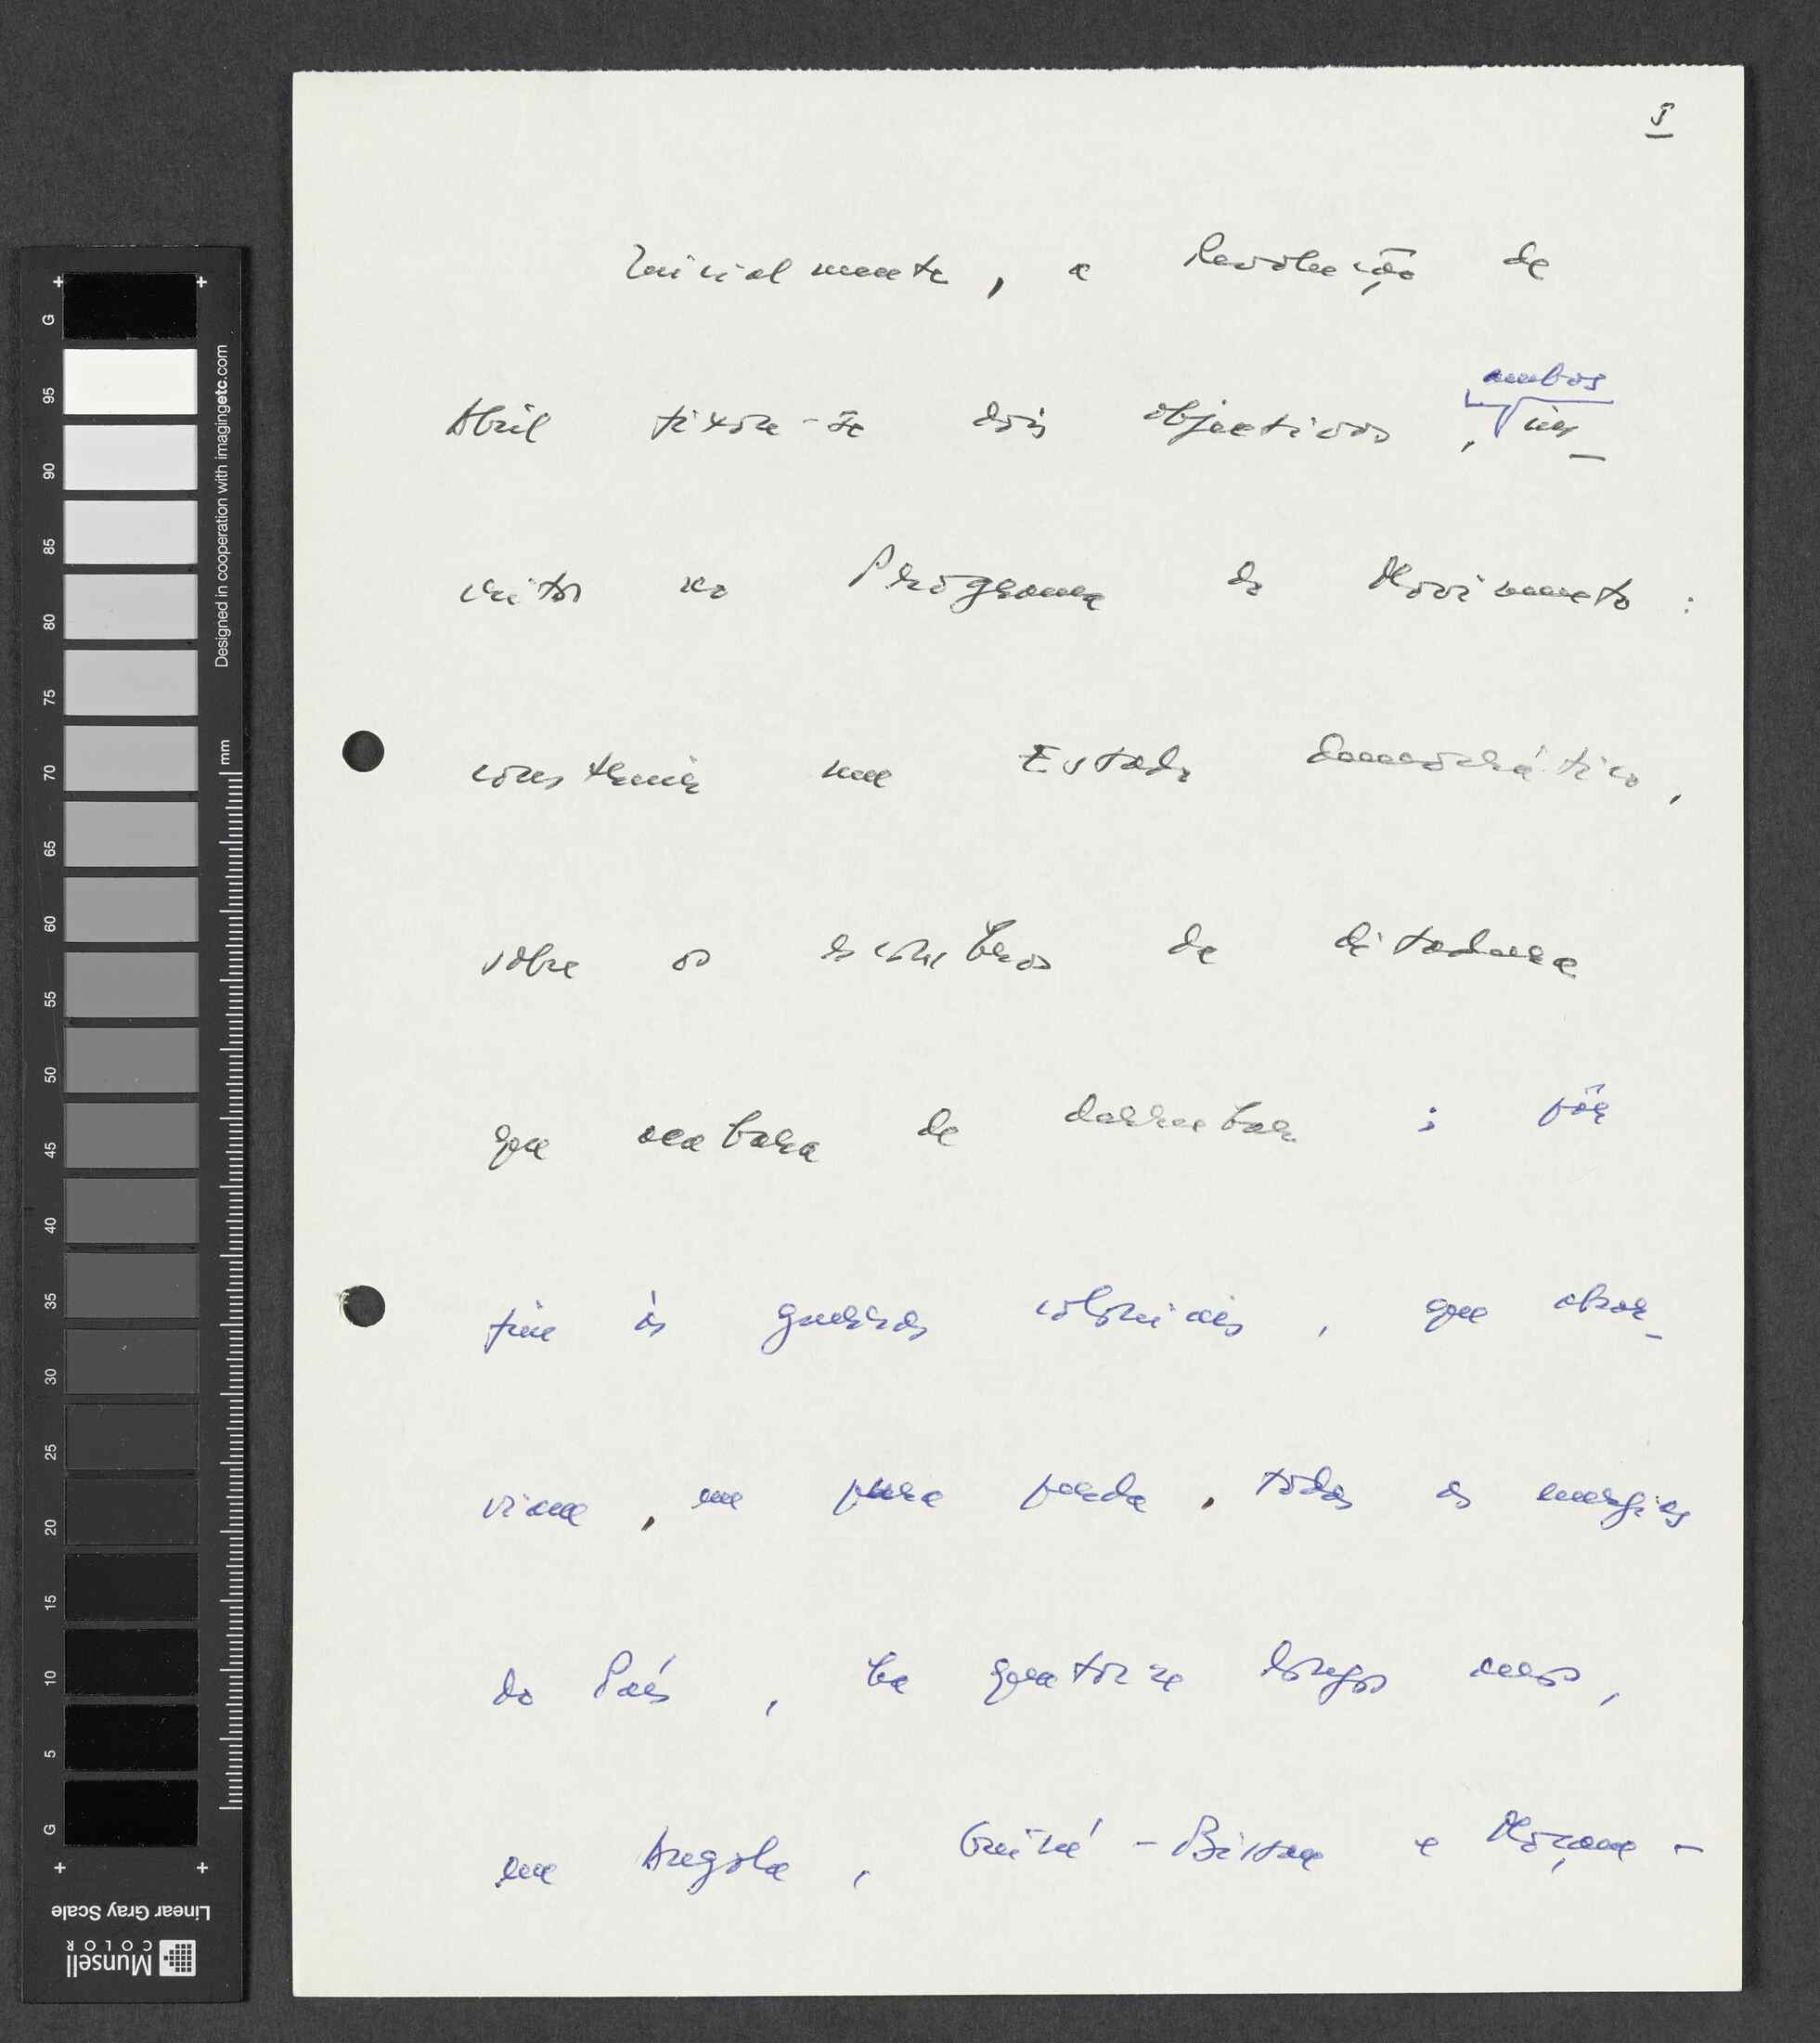 5
Inicialmente, a Revolução de
ambos
Abril fixou-se dois objectivos, ins-
critos no Programa do Movimento:
construir um Estado democrático,
sobre os escombros da ditadura
que acabara de derrubar; pôr
fim às guerras coloniais, que absor-
viam, em pura perda, todas as energias
do País, há quatorze longos anos,
em Angola, Guiné-Bissau e Moçam-
G
95
90
85
80
75
70
65
60
55
50
45
40
35
30
25
20
15
10
5
G
mm
Designed in cooperation with imagingetc.com
Linear Gray Scale
Munsell
COLOR